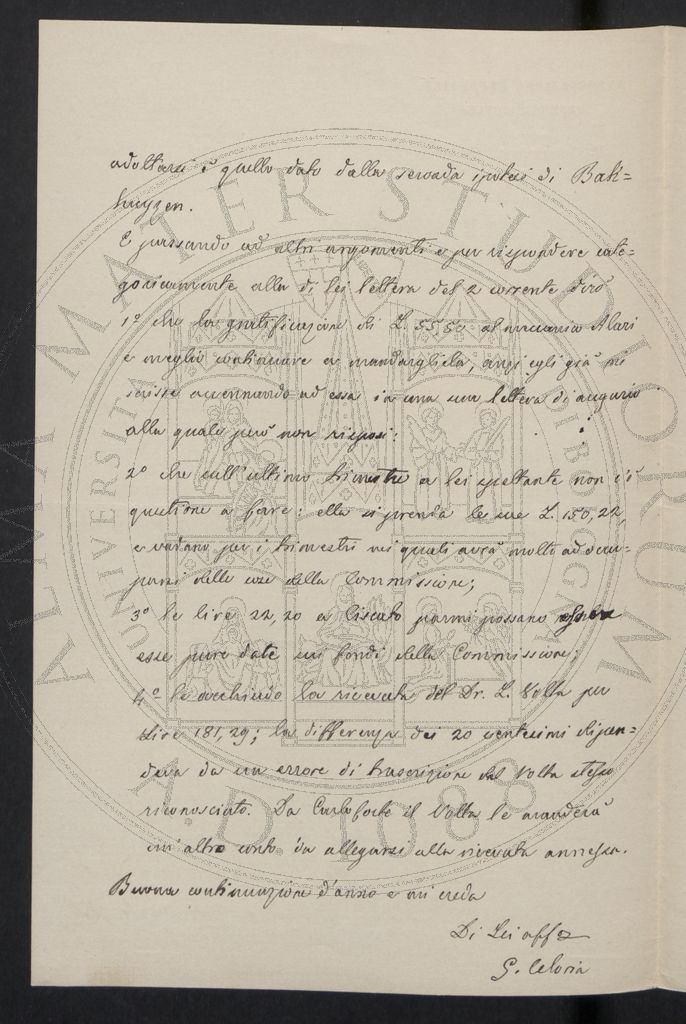 adottarsi è quello dato dalla seconda ipotesi di Bak=
huyzen.
E passando ad altri argomenti e per rispondere cate=
goricamente alla di lei lettera del 2 corrente dirò
1º che la gratificazione di L. 55,50 al meccanico Alari
è meglio continuare a mandargliela, anzi egli già mi
scrisse accennando ad essa in una sua lettera di augurio
alla quale però non risposi;
2º che sull'ultimo trimestre a lei spettante non c'è
questione a fare: ella si prenda le sue L. 150,22,
e vadano per i trimestri nei quali avrà molto ad occu=
parsi delle cose della Commissione;
3º le lire 22,20 a Ciscato parmi possano essere
esse pure date sui fondi della Commissione;
4º le acchiudo la ricevuta del Dr. L. Volta per
Lire 181,29; la differenza dei 20 centesimi dipen=
deva da un errore di trascrizione dal Volta stesso
riconosciuto. Da Carloforte il Volta le manderà
un altro conto da allegarsi alla ricevuta annessa.
Buona continuazione d'anno e mi creda
Di Lei affº
G. Celoria
ALMA MATER STUDIORUM
UNIVERSITÀ DI BOLOGNA
A.D. 1088